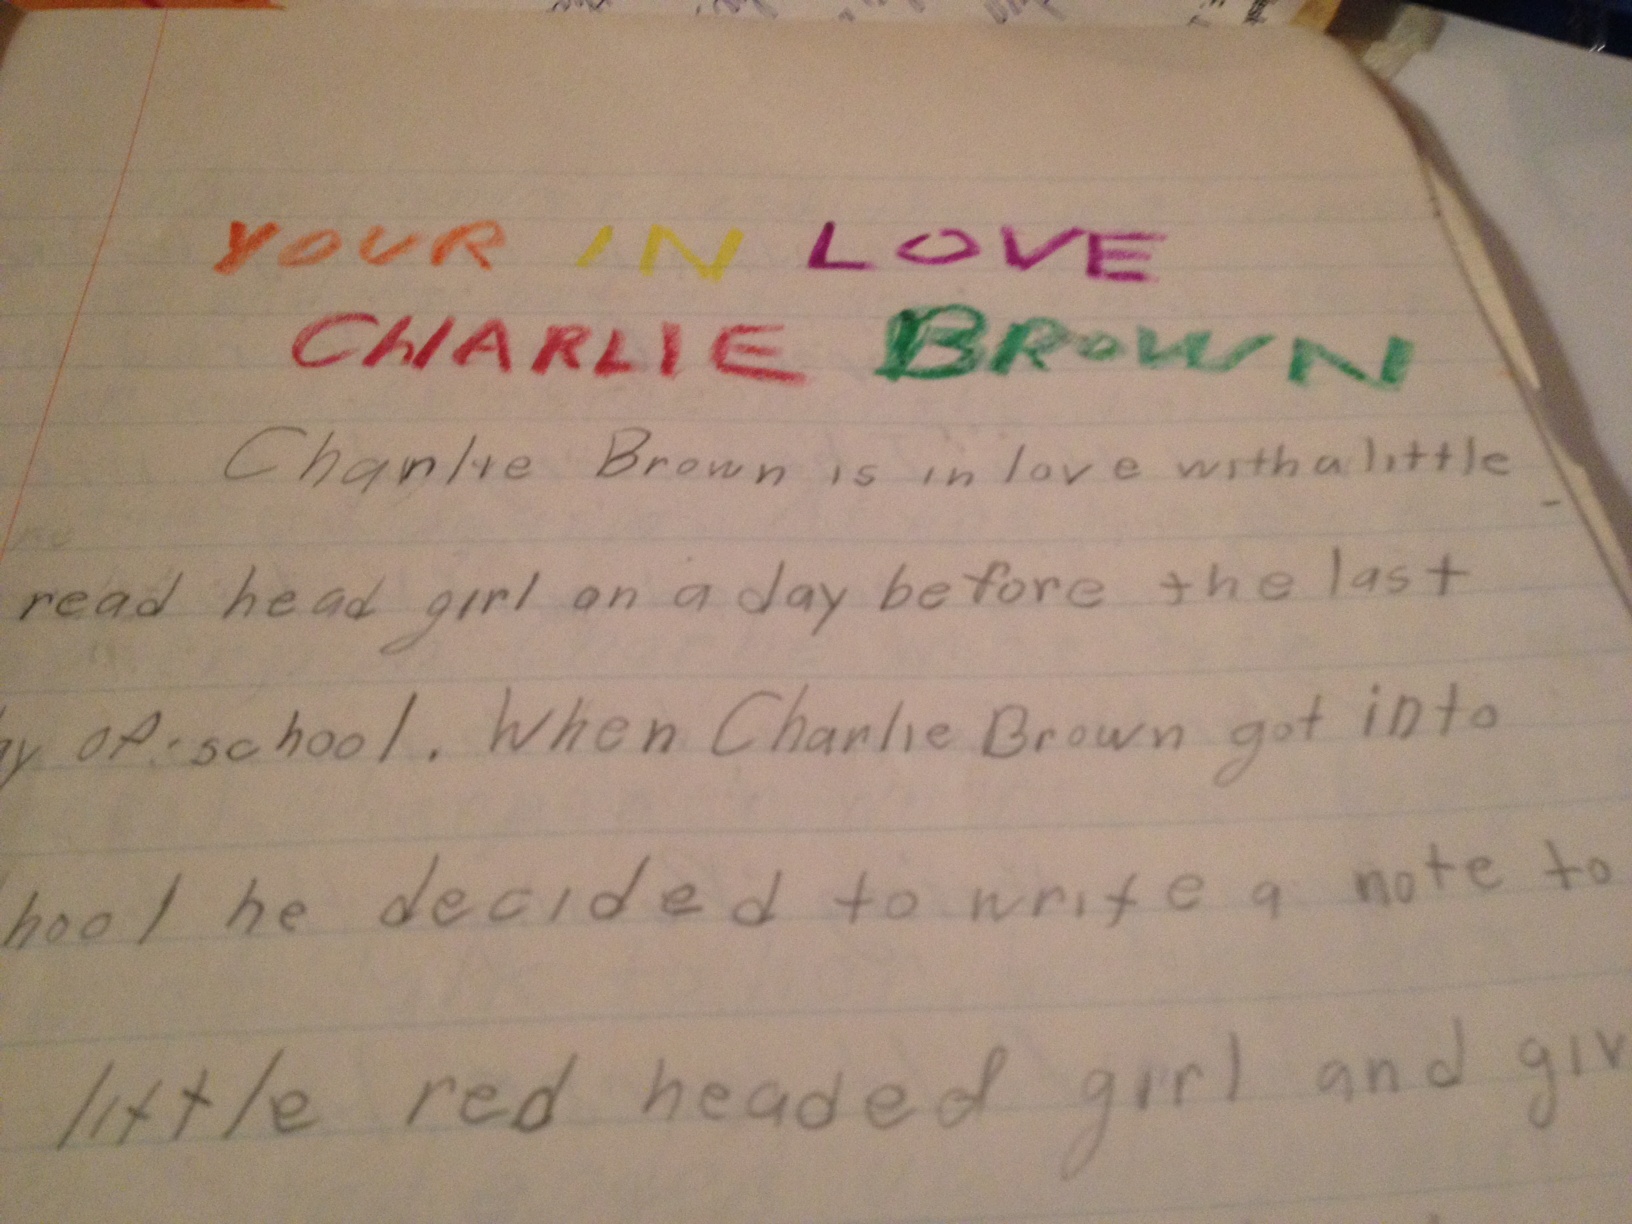 YOUR IN LOVE
CHARLIE BROWN
Charlie Brown is in love with a little
read head girl on a day before the last
ay of school. When Charlie Brown got into
hool he decided to write a note to
little red headed girl and giv